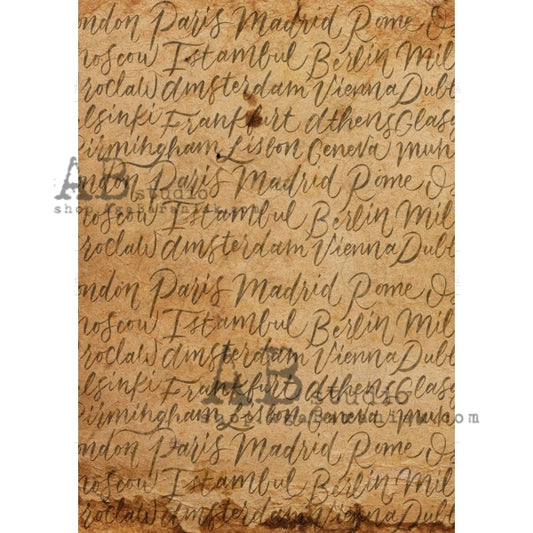 ondon Paris Madrid Rome Os
moscow Istambul Berlin Mil
roclaw amsterdam Vienna Dubl
elsinki Frankfurt Athens Glasg
Birmingham Lisbon Geneva mun
ondon Paris Madrid Rome Os
AB studio
moscow Istambul Berlin Mil
roclaw amsterdam Vienna Dubl
ondon Paris Madrid Rome Os
moscow Istambul Berlin Mil
roclaw amsterdam Vienna Dubl
elsinki Frankfurt Athens Glasg
AB studio
Birmingham Lisbon Geneva mun
ondon Paris Madrid Rome Os
moscow Istambul Berlin Mil
roclaw amsterdam Vienna Dubl